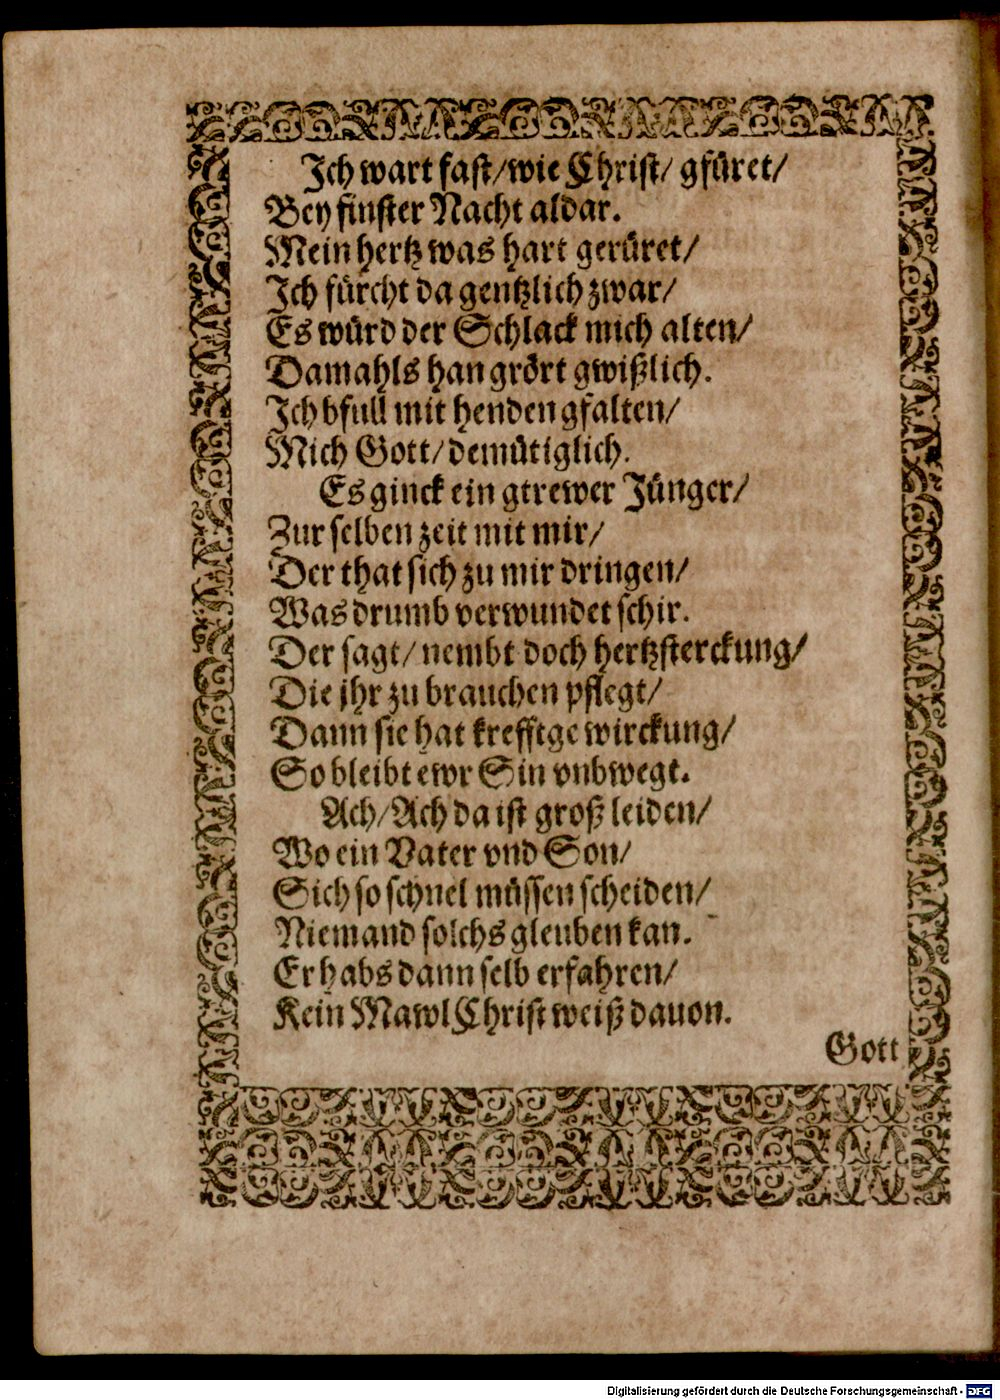 Ich wart fast/wie Christ/ gfüret/
Bey finster Nacht aldar.
Mein hertz was hart gerüret/
Ich fürcht da gentzlich zwar/
Es würd der Schlack mich alten/
Damahls han grört gwißlich.
Ich bfull mit henden gfalten/
Mich Gott/demütiglich.
Es ginck ein gtrewer Jünger/
Zur selben zeit mit mir/
Der that sich zu mir dringen/
Was drumb verwundet schir.
Der sagt/nembt doch hertzsterckung/
Die jhr zu brauchen pflegt/
Dann sie hat krefftge wirckung/
So bleibt ewr Sin vnbwegt.
Ach/Ach da ist groß leiden/
Wo ein Vater vnd Son/
Sich so schnel müssen scheiden/
Niemand solchs gleuben kan.
Er habs dann selb erfahren/
Kein Mawl Christ weiß dauon.
Gott
Digitalisierung gefördert durch die Deutsche Forschungsgemeinschaft - DFG